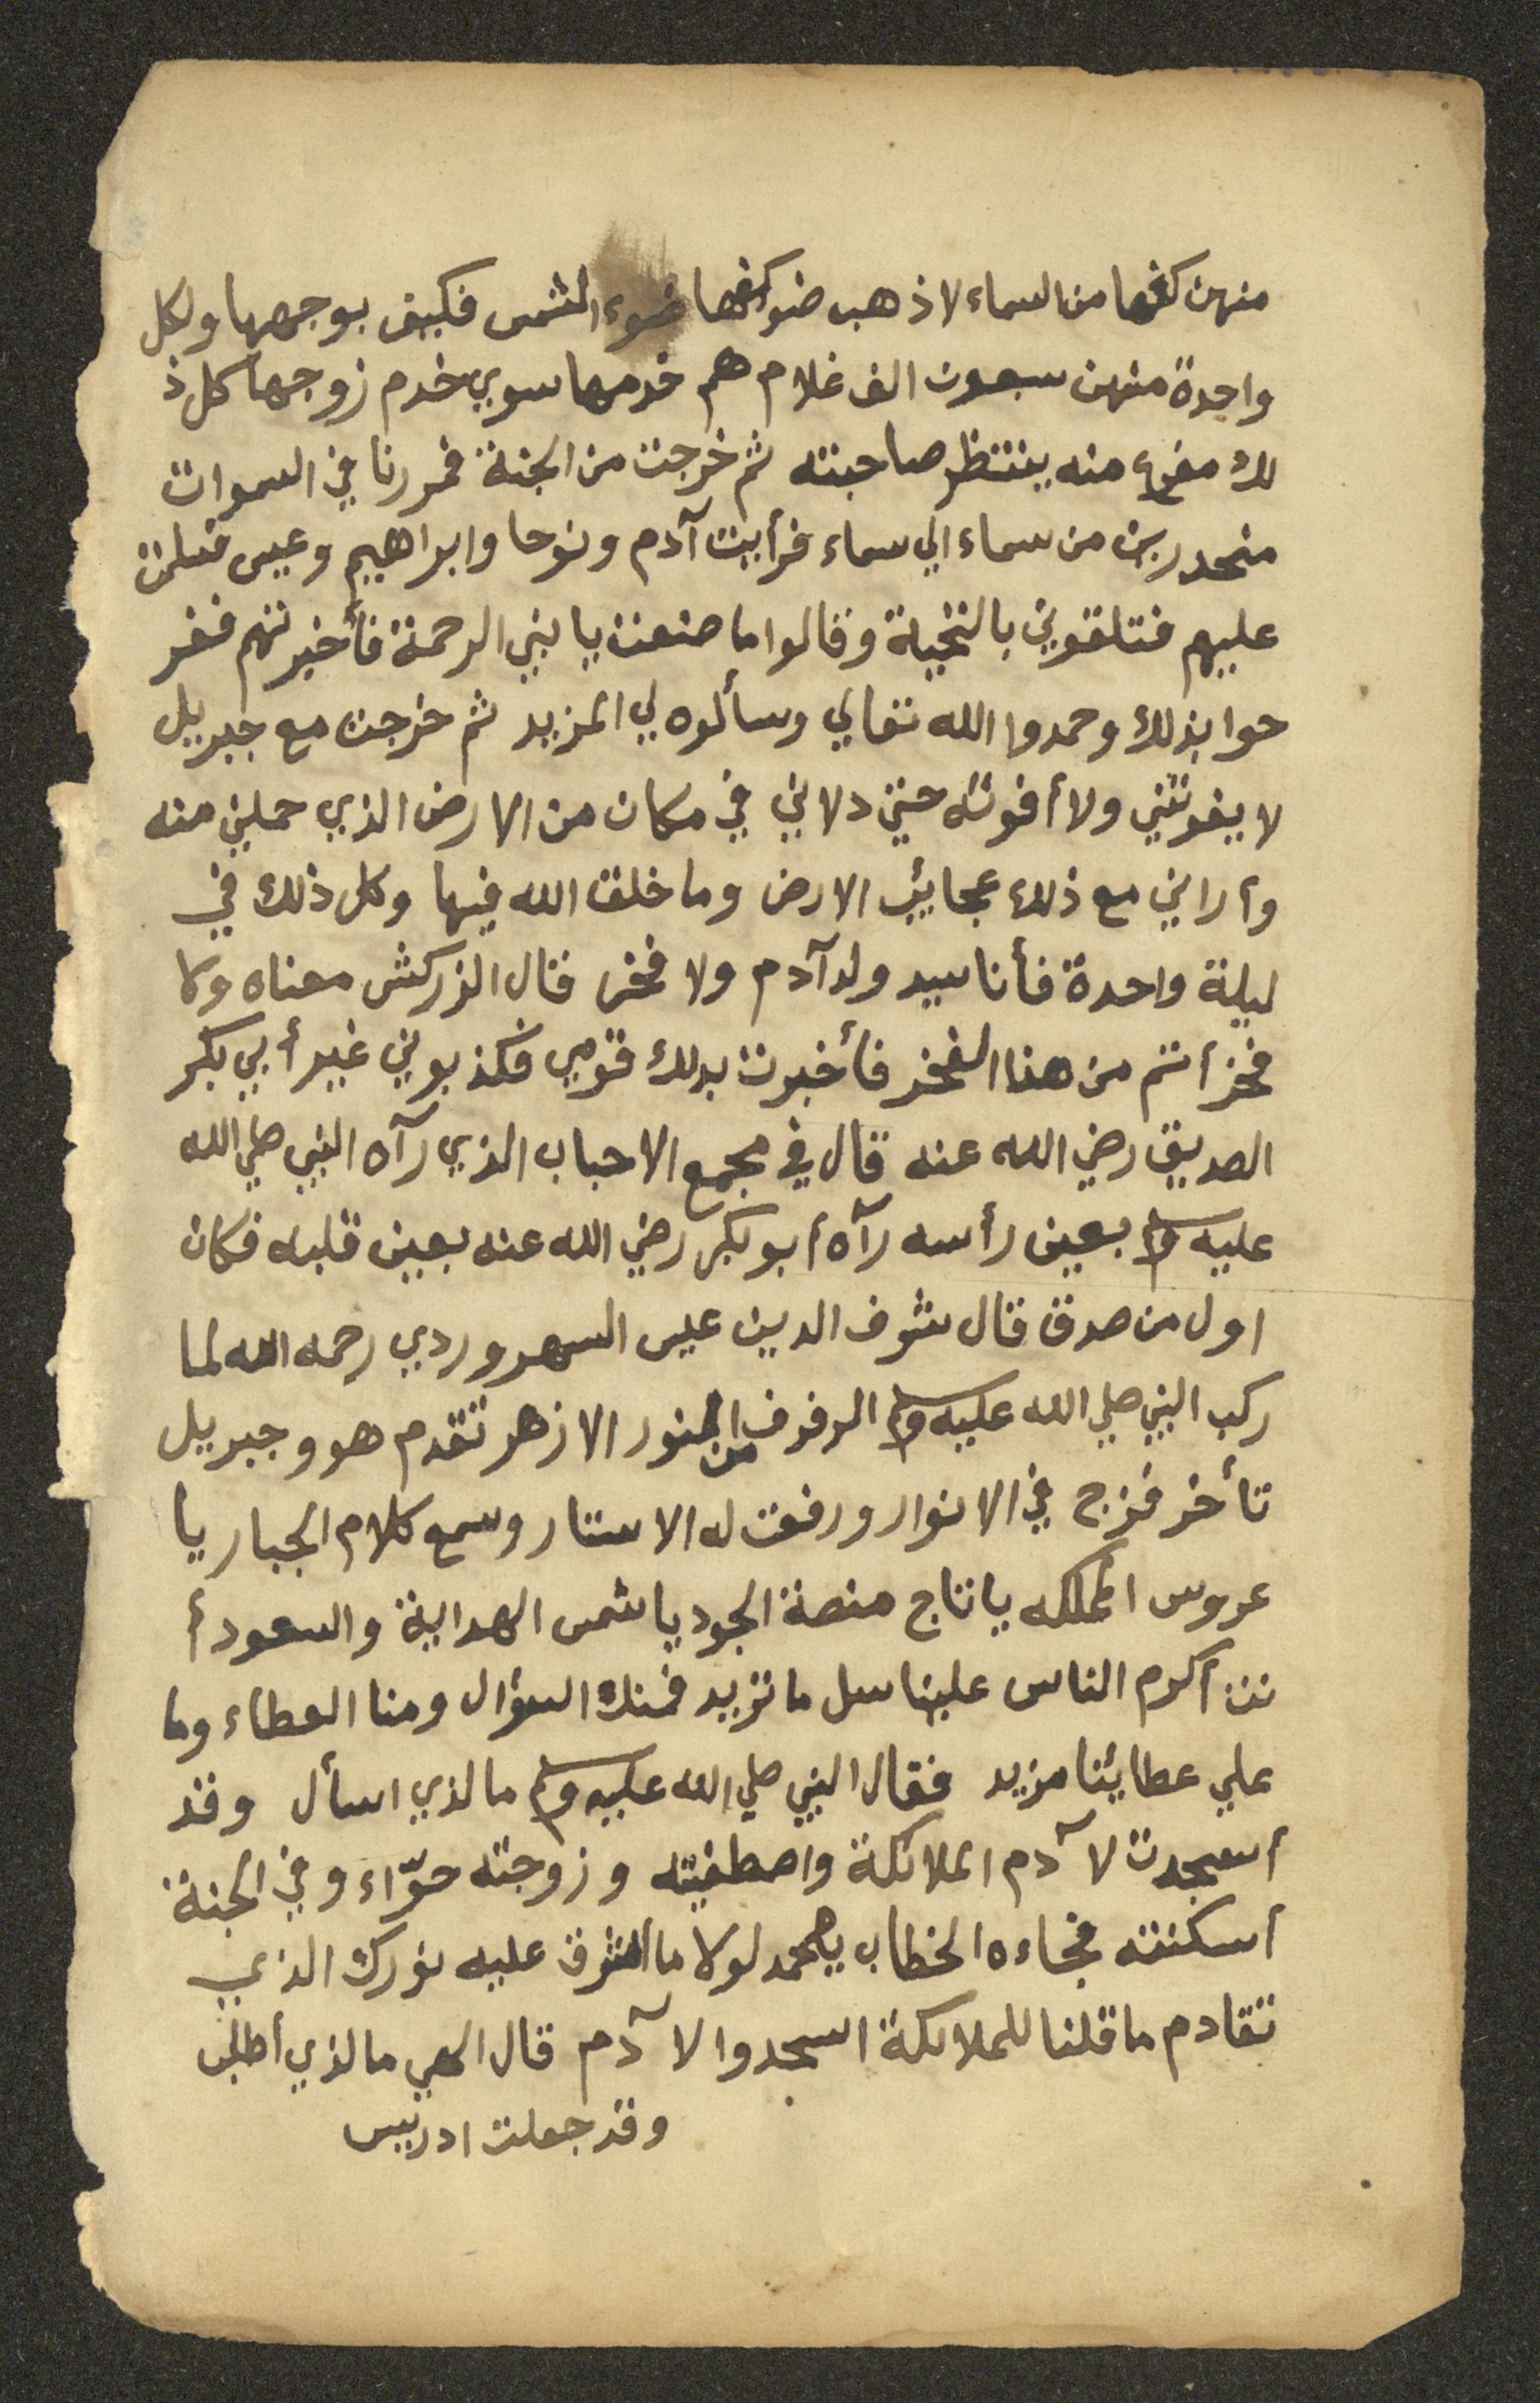 منهن كفها من السماء لاذهب ضوكفها ضوء الشمس فكيف بوجهها ولكل
واحدة منهن سبعون الف غلام هم خدمها سوي خدم زوجها كل ذ
لك مفرغ منه ينتظر صاحبته ثم خرجت من الجنة فمررنا في السموات
منحدرين من سماء الي سماء فرأيت آدم ونوحا وابراهيم وعيسى فسلمت
عليهم فتلقوني بالتحية وقالوا ما صنعت يا نبي الرحمة فأخبرتهم ففر
حوا بذلك وحمدوا الله تعالي وسألوه لي المزيد ثم خرجت مع جبريل
لا يفوتني ولا أفوته حتي دلاني في مكان من الارض الذي حملني منه
وأراني مع ذلك عجايب الارض وما خلق الله فيها وكل ذلك في
ليلة واحدة فأنا سيد ولد آدم ولا فخر قال الزركشي معناه ولا
فخر أتم من هذا الفخر فأخبرت بذلك قومي فكذبوني غير أبي بكر
الصديق رضي الله عنه قال في مجمع الاحباب الذي رآه النبي صلي الله
عليه وسلم بعين رأسه رآه أبو بكر رضي الله عنه بعين قلبه فكان
اول من صدق قال شرف الدين عيسى السهروردي رحمه الله لما
ركب النبي صلي الله عليه وسلم الرفرف من النور الازهر تقدم هو وجبريل
تأخر فزج في الانوار ورفعت له الاستار وسمع كلام الجبار يا
عروس المملكه يا تاج منصة الجود يا شمس الهداية والسعود أ
نت أكرم الناس علينا سل ما تزيد فمنك السؤال ومنا العطاء وما
علي عطايئنا مزيد فقال النبي صلي الله عليه وسلم مالذي اسأل وقد
أسجدت لاآدم الملائكة واصطفيته وزوجته حوّاء وفي الجنة
أسكنته فجاءه الخطاب يا محمد لولا ما اشرق عليه نورك الذي
تقادم ما قلنا للملائكة اسجدوا لاآدم قال الهي مالذي أطلب
وقد جعلت ادريس